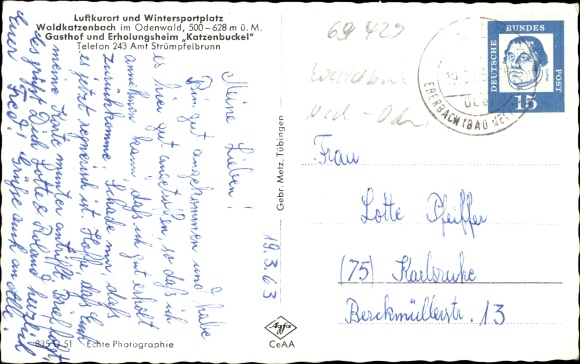 Luftkurort und Wintersportplatz
Waldkatzenbach im Odenwald, 500-628 m ü. M.
Gasthof und Erholungsheim „Katzenbuckel"
Telefon 243 Amt Strümpfelbrunn
69 429
DEUTSCHE BUNDES POST
15
EBERBACH (BAD
Meine Lieben!
Bin gut angekommen und habe
es hier gut angetroffen, so daß ich
annehmen kann, daß ich gut erholt
zurückkomme. Schade nur, daß
es jetzt regnerisch ist. Hoffe, daß
meine Karte munter antrifft
des grüßt Dich Lotte & Roland herzlich
Euer Fred! Grüße auch an Alle!
19.3.63
Gebr. Metz, Tübingen
Frau
Lotte Pfeiffer
(75) Karlsruhe
Berckmüllerstr. 13
Agfa
CeAA
Echte Photographie